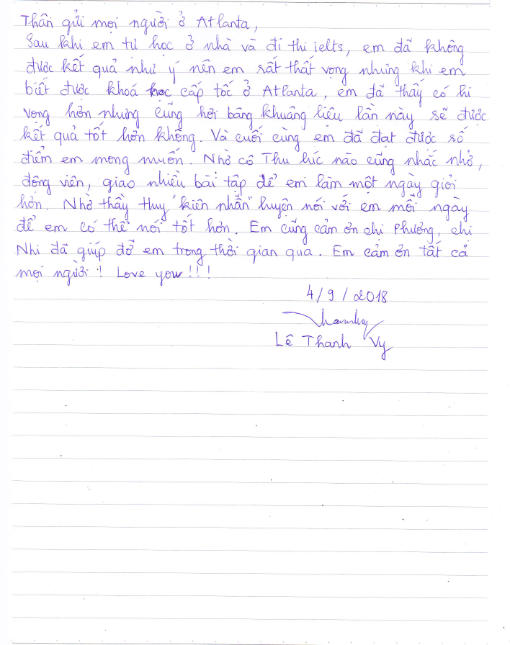 Thân gửi mọi người ở Atlanta,
Sau khi em tự học ở nhà và đi thi ielts, em đã không
được kết quả như ý nên em rất thất vọng nhưng khi em
biết được khoá học cấp tốc ở Atlanta, em đã thấy có hi
vọng hơn nhưng cũng hơi bâng khuâng liệu lần này sẽ được
kết quả tốt hơn không. Và cuối cùng em đã đạt được số
điểm em mong muốn. Nhờ cô Thu lúc nào cũng nhắc nhở,
động viên, giao nhiều bài tập để em làm một ngày giỏi
hơn. Nhờ thầy thuy "kiên nhẫn" luyện nói với em mỗi ngày
để em có thể nói tốt hơn. Em cũng cảm ơn chị Phương, chị
Nhi đã giúp đỡ em trong thời gian qua. Em cảm ơn tất cả
mọi người! Love you!!!
4/9/2018
Lê Thanh Vy